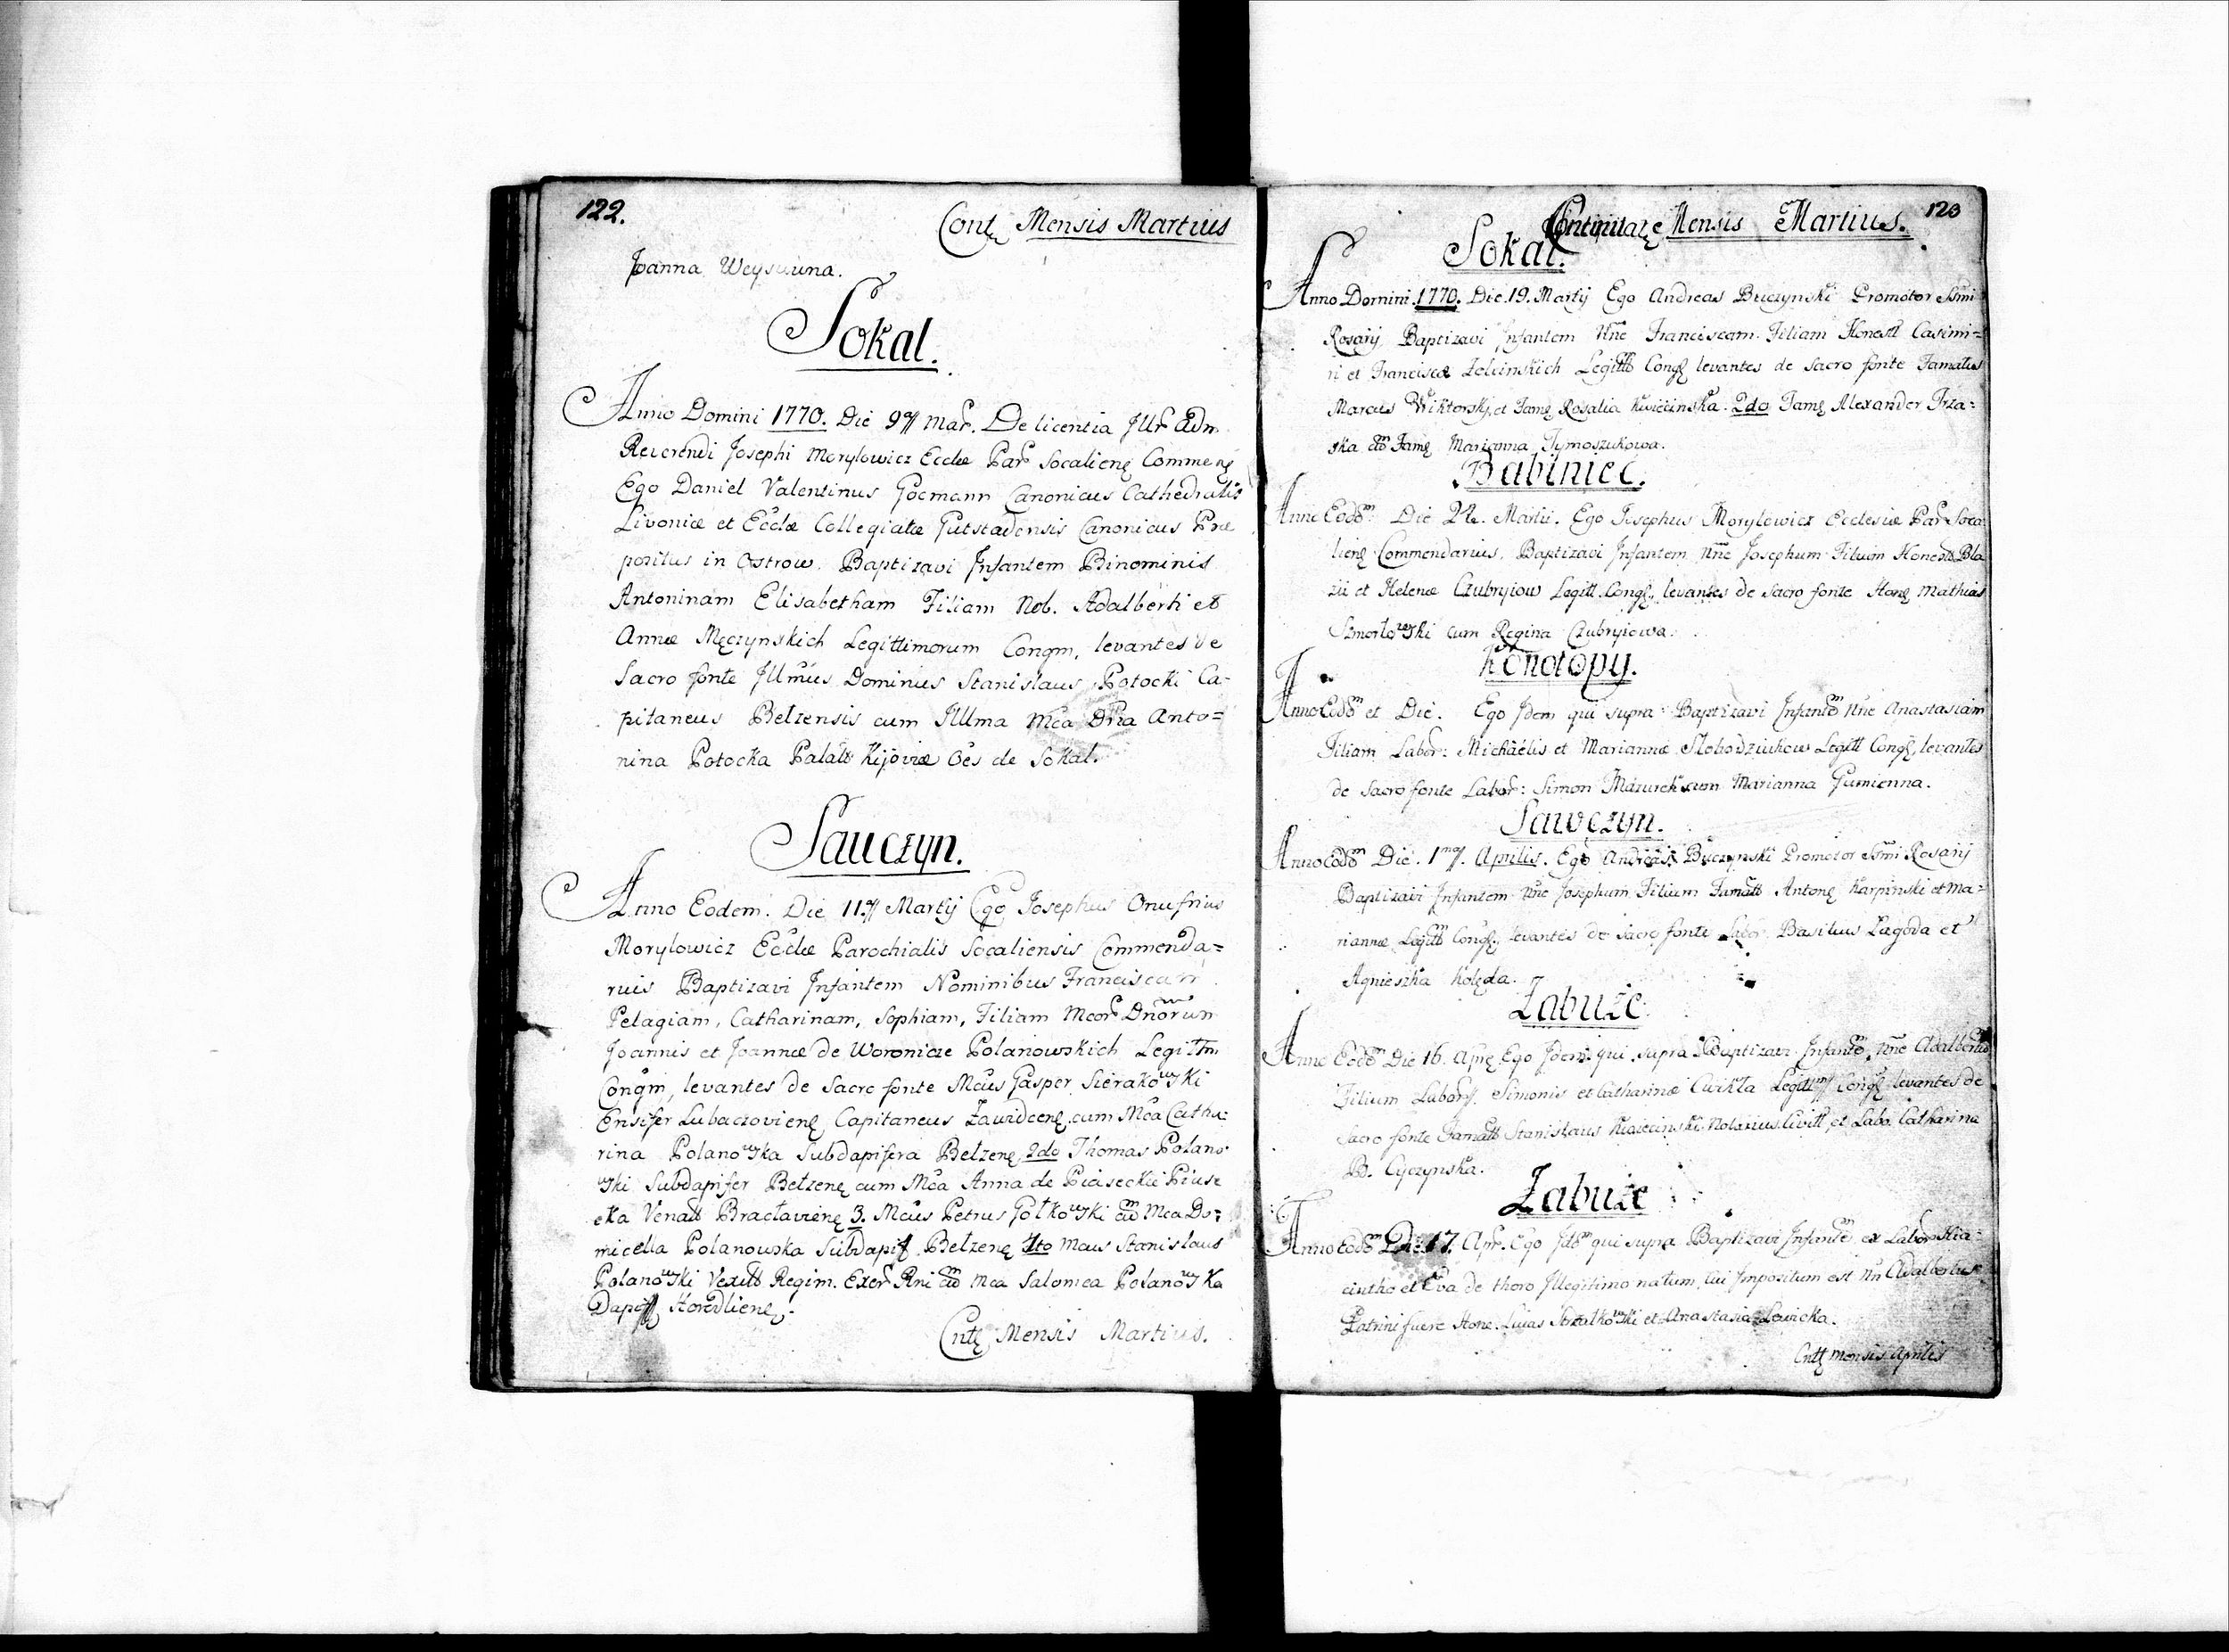 122.
Cont. Mensis Martius
Joanna
Sokal.
Anno Domini 1770. Die 9 Mar. De licentia Illr Adm
Reverendi Josephi Morylowicz Ecclæ Par Socalienę Commenę
Ego Daniel Valentinus Gocmann Canonicus Cathedralis
Livoniæ et Ecclæ Collegiatæ Gutstadensis Canonicus Præ
positus in Ostrow. Baptizavi Infantem Binominis
Antoninam Elisabetham Filiam Nob. Adalberti et
Annæ Męczynskich Legittimorum Congm, levantes de
Sacro fonte Illmus Dominus Stanislaus Potocki Ca-
pitaneus Belzensis cum Illma Mca Dna Anto=
nina Potocka Palatt Kijoviæ Oes de Sokal.
Sauczyn.
Anno Eodem. Die 11 Martij Ego Josephus Onufrius
Morylowicz Ecclæ Parochialis Socaliensis Commenda=
rius Baptizavi Infantem Nominibus Franciscam
Pelagiam, Catharinam, Sophiam, Filiam Mcor Dnorum
Joannis et Joannæ de Woronicze Polanowskich Legittm
Congm, levantes de Sacro fonte Mcus Gasper Sierakowski
Ensifer Lubaczovienę Capitaneus Zawidcenę cum Mca Catha-
rina Polanowska Subdapifera Belzenę 2do Thomas Polano
wski Subdapifer Betzenę cum Mca Anna de Piaseckie Piase
cka Venatt Bracłavienę 3. Mcus Petrus Gołkowski cu Mca Do-
micella Polanowska Subdapif Belzenę 4to Mcus Stanislaus
Polanowski Vexill Regim. Exer Rni cu Mca Salomea Polanowska
Dapiff Horodlienę.
Cntę Mensis Martius.
Continuatę Mensis Martius. 123
Sokal.
Anno Domini 1770. Die 19. Martij Ego Andreas Buczynski Promotor Ssmi
Rosarij Baptizavi Infantem Nne Franciscam Filiam Honestt Casimi=
ri et Franciscæ Zelcinskich Legitt Congę levantes de Sacro fonte Famatus
Marcus Wiktorski, et Famę Rosalia Kwiecinska. 2do Famę Alexander Trza=
ska cu Famę Marianna Tymoszukowa.
Babiniec.
Anno Eodem Die 22. Martii. Ego Josephus Morylowicz Ecclesiæ Par Soca
lienę Commendarius, Baptizavi Infantem Nne Josephum Filium Honestt Bla
zii et Helenæ Czubryiow Legitt Congę, levantes de Sacro fonte Honę Mathias
cum Regina Czubryiowa.
Konotopy.
Anno Eodem et Die. Ego Idem qui supra Baptizavi Infantem Nne Anastasiam
Filiam Labor: Michaëlis et Mariannæ Slobodziukow Legitt Congę, levantes
de Sacro fonte Labor: Simon Mazurek cum Marianna Gumienna.
Sawczyn.
Anno Eodem Die. 1 Aprilis. Ego Andreas Buczynski Promotor Ssmi Rosarij
Baptizavi Infantem Nne Josephum Filium Famatt Antonę Karpinski et Ma=
riannæ Legitt Congę, levantes de Sacro fonte Labor. Basilius Łagoda et
Agnieszka Kolęda.
Zabuże.
Anno Eodem Die 16. Aprę Ego Idem qui supra Baptizavi Infantem Nne Adalbertum
Filium Labor. Simonis et Catharinæ Cwikła Legitt Congę levantes de
Sacro fonte Famatt Stanislaus Kwiecinski Notarius Civitt, et Labo. Catharina
B. Cyczynska.
Zabuże
Anno Eodem Die 17. Apr. Ego Idem qui supra Baptizavi Infantem ex Labor Hia-
cintho et Eva de thoro Illegitimo natum, cui Impositum est Nn Adalbertus
Patrini fuere Hone. Lucas Strzałkowski et Anastasia Lewicka.
Cntę Mensis Aprilis